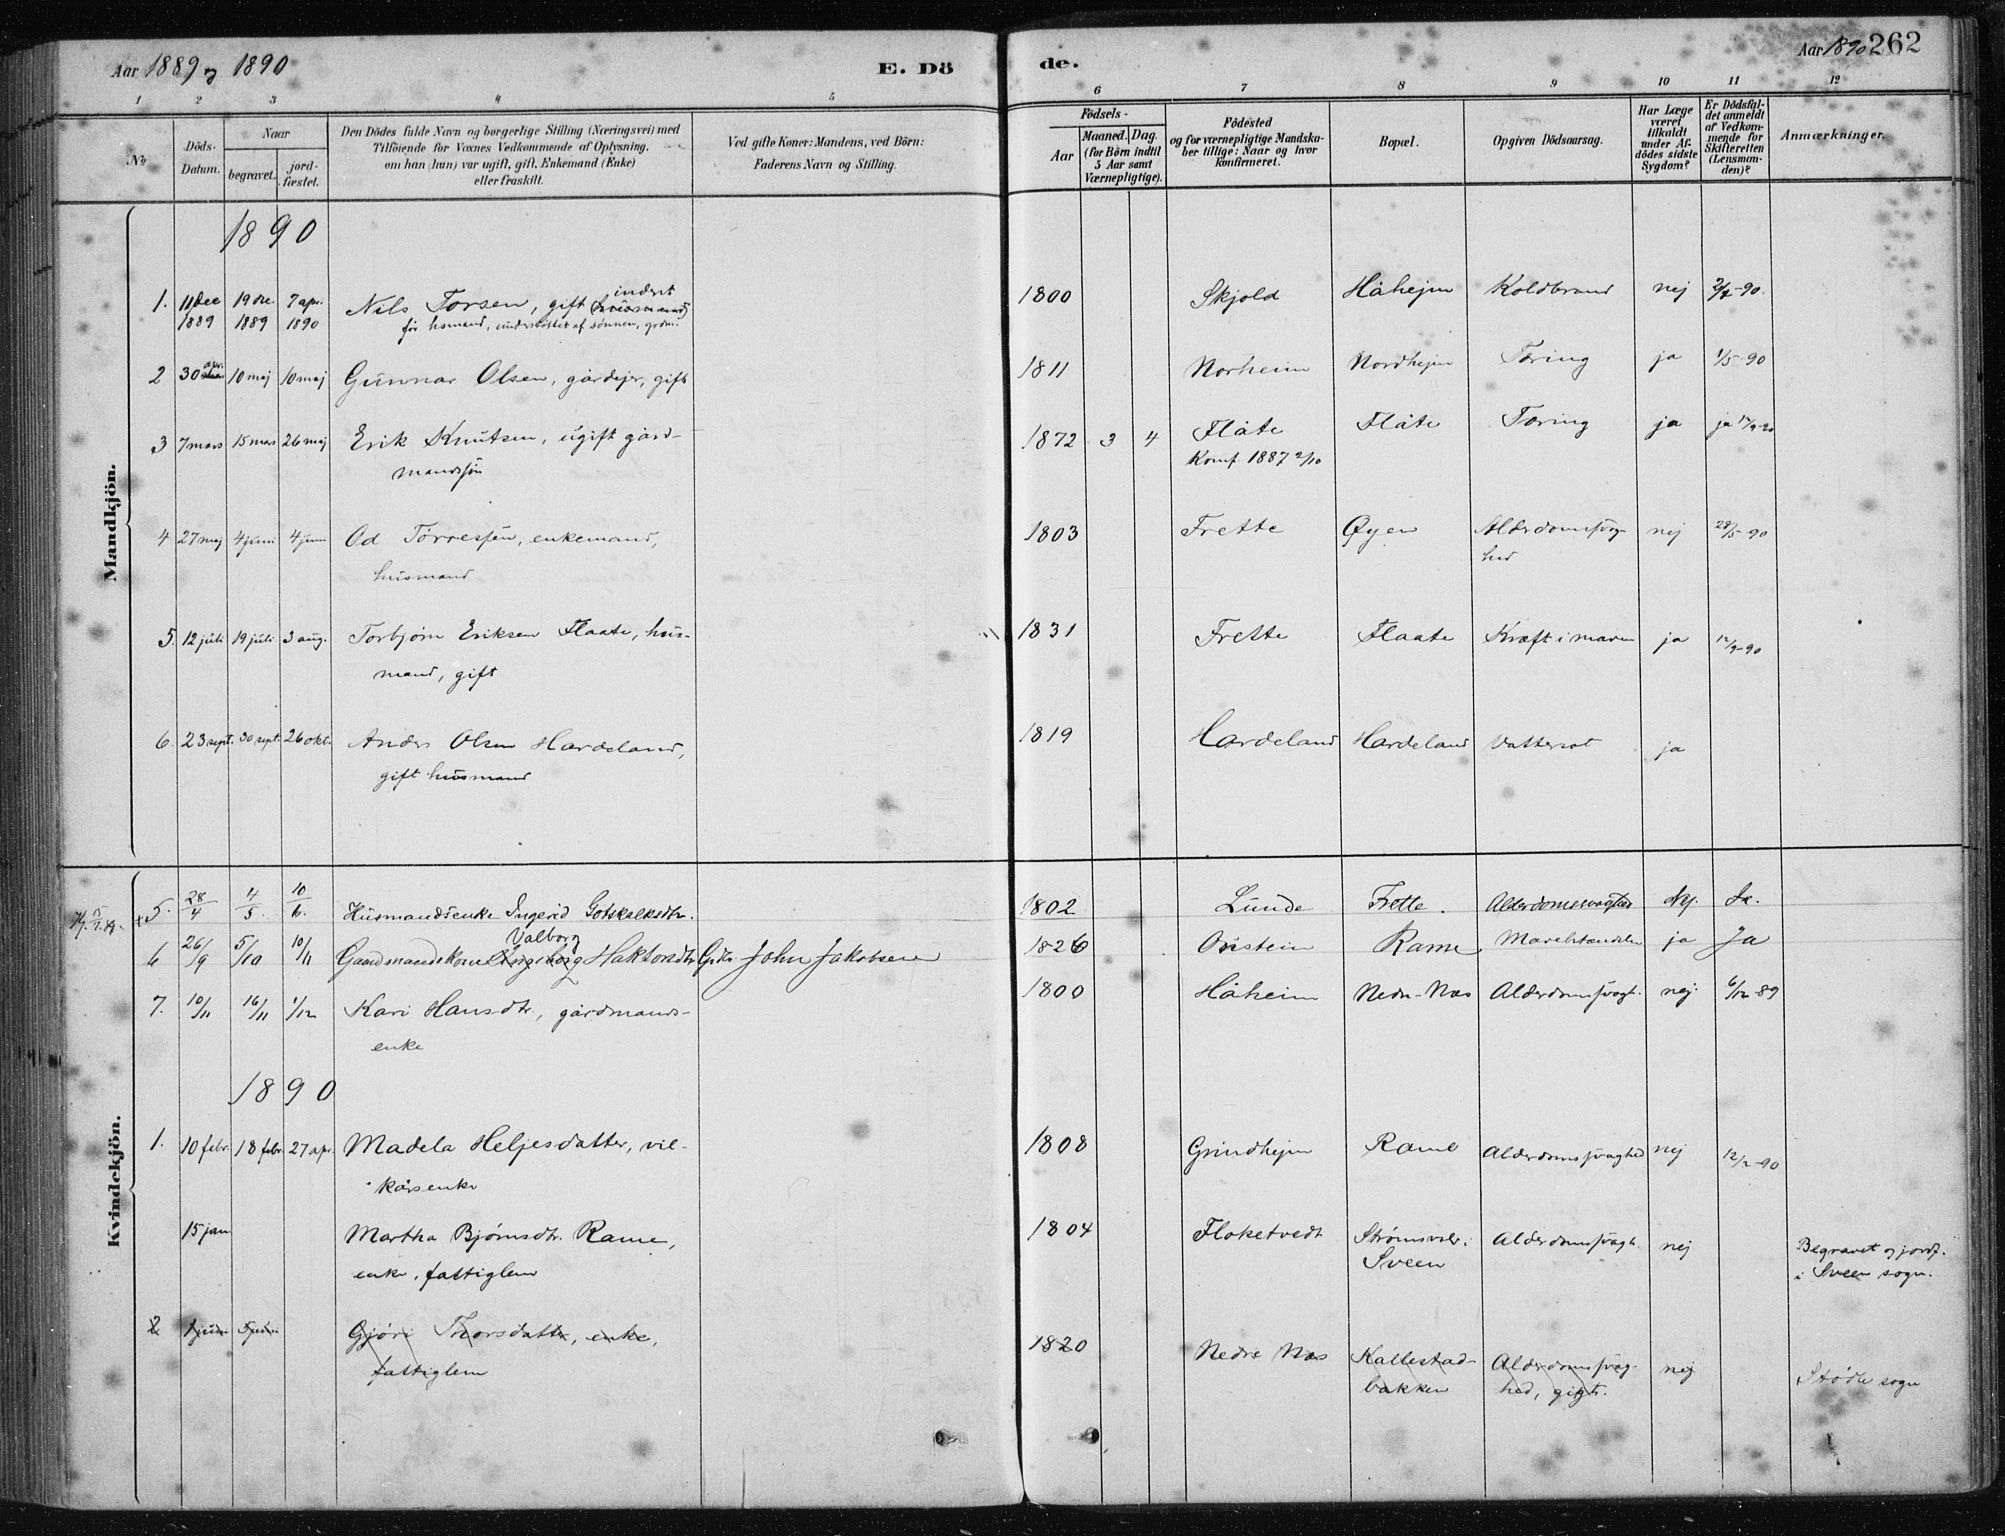 Aar 1889 og 1890
E. Dö
de.
Aar 1890 262
1 2 3 4 5 6 7 8 9 10 11 12
No
Döds-Datum.
Naar
begravet.
jord-fæstet.
Den Dödes fulde Navn og borgerlige Stilling (Næringsvei) med
Tilföiende for Voxnes Vedkommende af Oplysning,
om han (hun) var ugift, gift, Enkemand (Enke)
eller fraskilt.
Ved gifte Koner: Mandens, ved Börn:
Faderens Navn og Stilling.
Födsels-
Aar
Maaned. Dag.
(for Börn indtil
5 Aar samt
Værnepligtige).
Födested
og for værnepligtige Mandska-
ber tillige: Naar og hvor
konfirmeret.
Bopæl.
Opgiven Dödsaarsag.
Har Læge
været
tilkaldt
under Af-
dödes sidste
Sygdom?
Er Dödsfal-
det anmeldt
af Vedkom-
mende for
Skifteretten
(Lensman-
den)?
Anmærkninger.
Mandkjön.
1890
1. 11 dec 1889 19 dec. 1889 7 apr. 1890 Nils Torsen, gift inderst
før hsmand, understøttet af sønnen, 1800 Skjold Håhejm Koldbrand nej 2/4-90.
2 30 apr. 10 maj 10 maj Gunnar Olsen, gårdejer, gift 1811 Norheim Nordhejm Tæring ja 1/5-90
3 7 mars 15 mars 26 maj Erik Knutsen, ugift gård-
mandssøn 1872 3 4 Flåte Flåte Tæring ja ja
Konf. 1887 2/10
4 27 maj 4 juni 4 juni Od Tørressøn, enkemand,
husmand 1803 Frette Øyen Alderdomssvag-
hed nej 28/5-90
5. 12 juli 19 juli 3 aug. Torbjørn Eriksen Flaate, hus-
mand, gift 1831 Frette Flaate Kræft i maven ja 12/9-90
6. 23 sept. 30 sept. 26 okt. Anders Olsen Hardeland,
gift husmand 1819 Hardeland Hardeland Vattersot ja
Kvindekjön.
5. 28/4 4/5. 10/6. Husmandsenke Ingerid Gotskalksdtr. 1802 Lunde Frette. Alderdomssvaghed Nej. Ja.
Valborg
6 26/9 5/10 10/11 Gaardmandskone Ingeborg Haktorsdtr Grdbr. John Jakobsen 1826 Øristein Rame Mavebetændelse ja Ja
7. 10/11 16/11 1/12 Kari Hansdtr., gårdmands-
enke 1800 Håheim Nedre-Næs Alderdomssvagh. nej. 6/12-89
1890
1. 10 febr. 18 febr. 27 apr. Madela Heljesdatter, vil-
kårsenke 1808 Grindhejm Rame Alderdomssvaghed nej 12/2-90
15 jan. Martha Bjørnsdtr. Rame,
enke, fattiglem 1804 Floketvedt Strømsvær i
Sveen Alderdomssvagh. nej Begravet og jordf.
i Sveen sogn.
2 1 juni 5 juni Gjøri Thorsdatter, enke,
fattiglem 1820 Nedre Næs Kallestad-
bakken Alderdomssvag-
hed, gigt. nej Stødle sogn